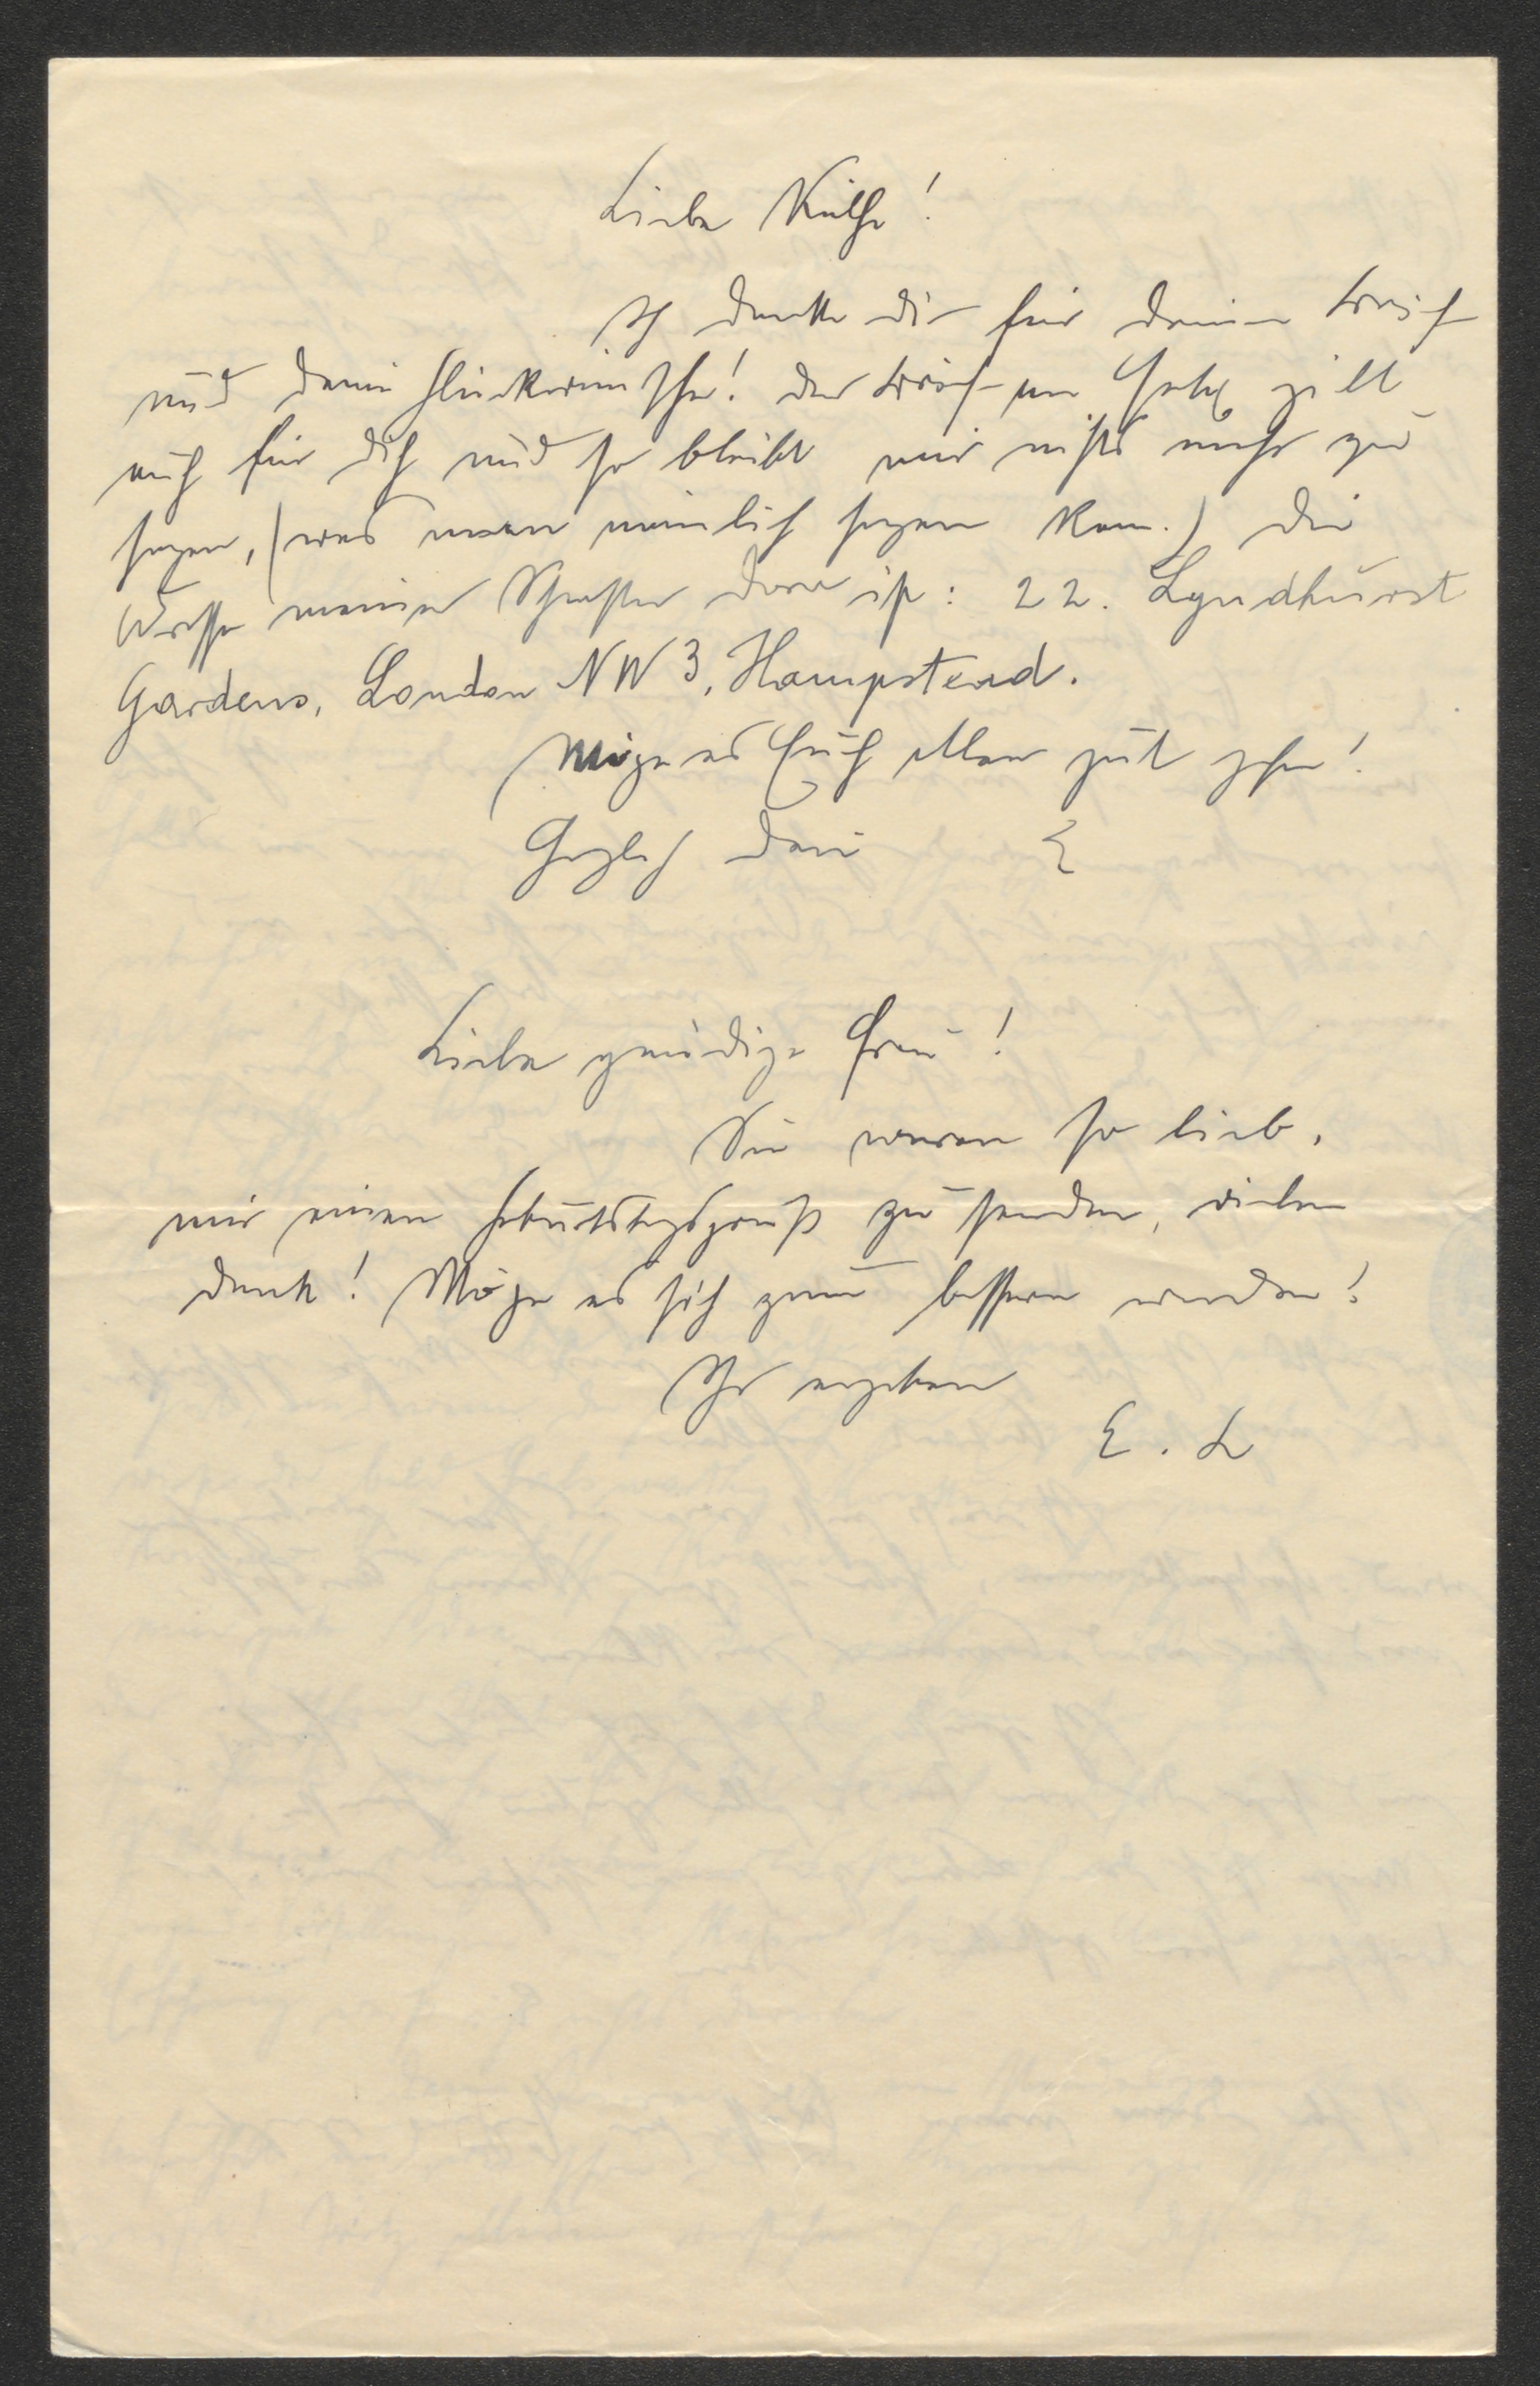 Liebe Käthe!
Ich danke dir für deinen Brief
und deine Glückwünsche! Der Brief an Hans gilt
auch für dich und so bleibt mir nichts mehr zu
sagen, (was man nämlich sagen kann.) Die
Adresse meiner Schwester Dora ist: 22. Lyndhurst
Gardens, London NW3, Hampstead.
Möge es Euch allen gut gehen!
Herzlich dein E
Liebe gnädige Frau!
Sie waren so lieb,
mir einen Geburtstagsgruß zu senden, vielen
Dank! Möge es sich zum bessern wenden!
Ihr ergebener
E. L